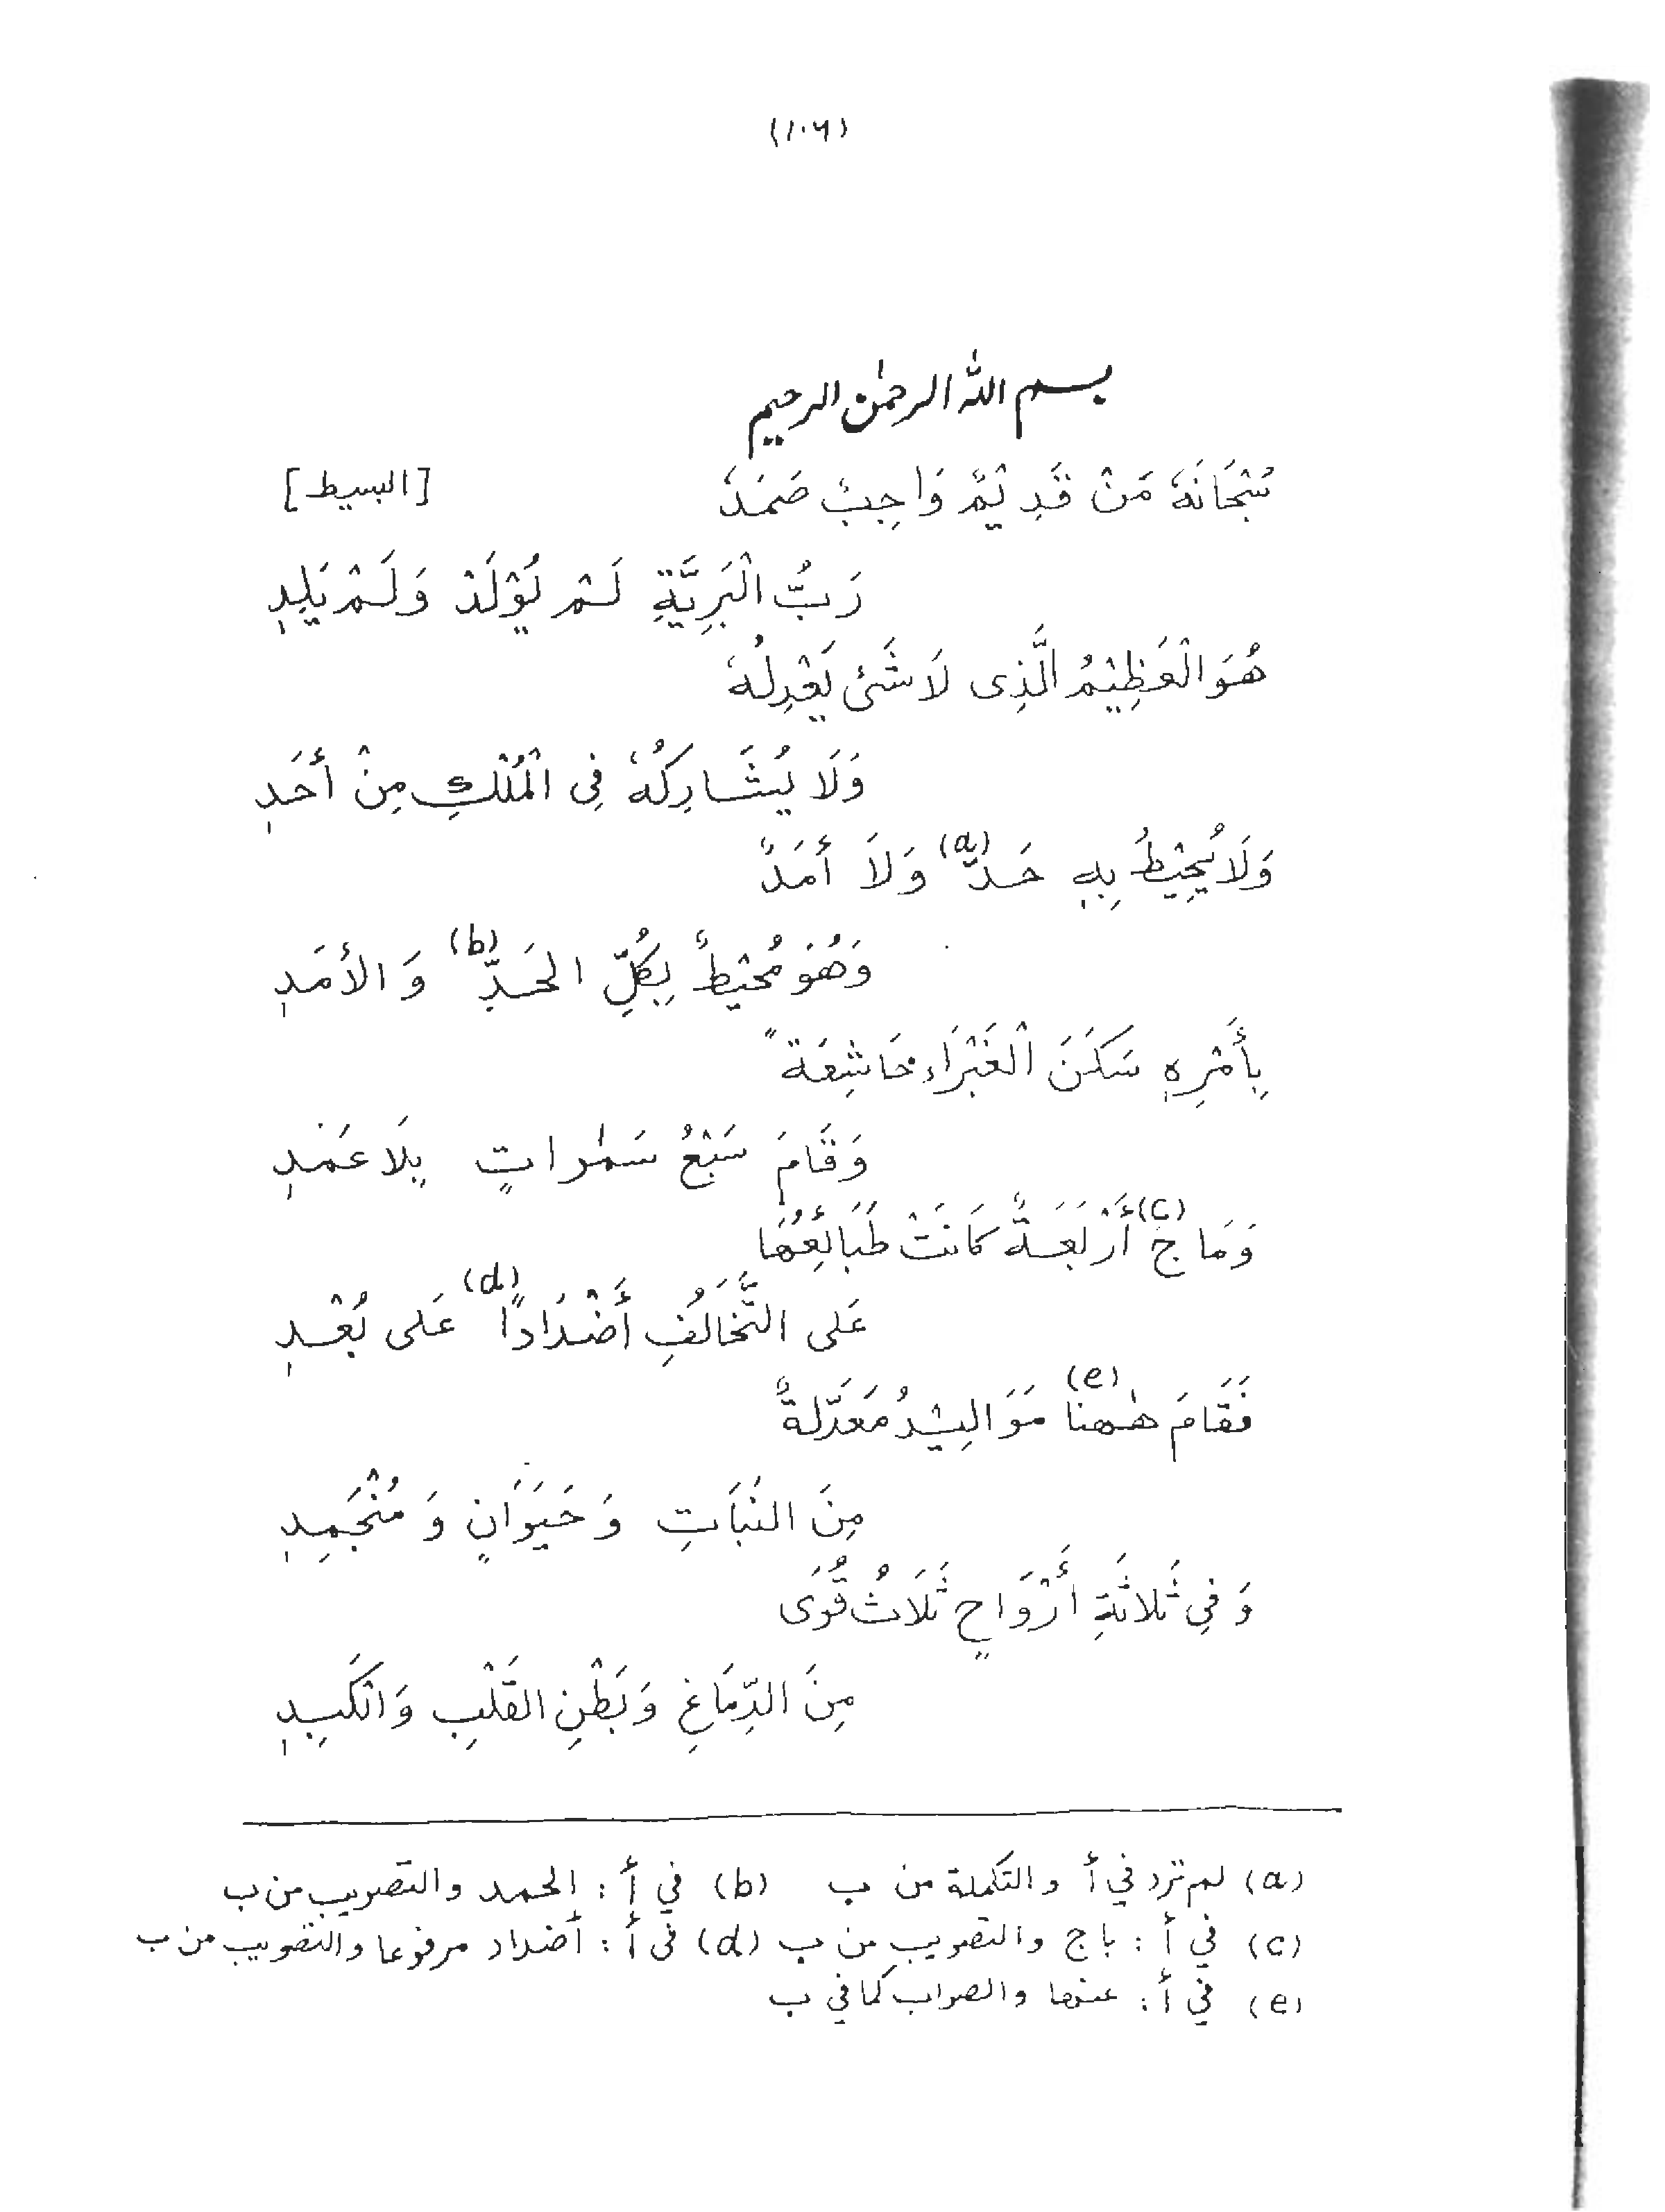 (١٠٦)
بسم الله الرحمٰن الرحيم
سُبْحَانَهُ مَنْ قَدِيْمٌ وَاجِبٌ صَمَدٌ [البسيط]
رَبُّ الْبَرِيَّةِ لَمْ يُوْلَدْ وَلَمْ يَلِدِ
هُوَ الْعَظِيْمُ الَّذِى لَا شَئ يَعْدِلُهُ
وَلَا يُشَارِكُهُ فِى الْمُلْكِ مِنْ أَحَدِ
وَلَا يُحِيْطُ بِهِ حَدٌّ (a) وَلَا أَمَدٌ
وَهُوَ مُحِيْطٌ بِكُلِّ الحَدِّ (b) وَالأَمَدِ
بِأَمْرِهِ سَكَنَ الْغَبْرَاء خَاشِعَةً
وَقَامَ سَبْعُ سَمٰواتٍ بِلَا عَمَدِ
وَمَاجَ (c) أَرْبَعَةٌ كَانَتْ طَبَائِعُهَا
عَلى التَّخَالُفِ أَضْدَادًا (d) عَلى بُعْدِ
فَقَامَ هٰهنا (e) مَوَالِيْدُ مُعَدَّلةٌ
مِنَ النَبَاتِ وَحَيَوَانٍ وَمُنْجَمِدِ
وَفِي ثَلاثَةِ أَرْوَاحٍ ثَلَاثُ قُوَى
مِنَ الدِّمَاغِ وَبَطْنِ القَلْبِ وَالكَبِدِ
(a) لم ترد في أ والتكملة من ب (b) في أ : الحمد والتصويب من ب
(c) في أ : باج والتصويب من ب (d) في أ : أضداد مرفوعا والتصويب من ب
(e) في أ : عنها والصواب كما في ب